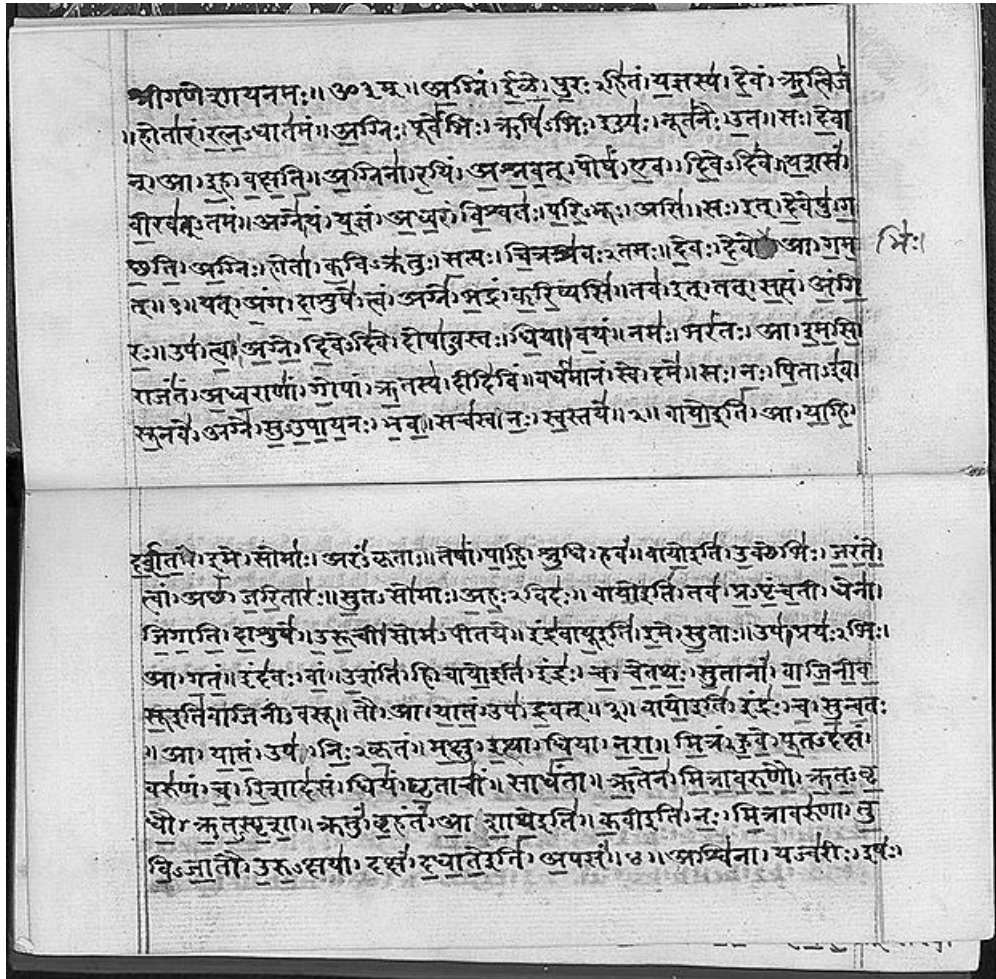 श्रीगणेशायनमः॥ ॐ३म्॥ अग्निं। ईळे। पुरःऽहितं। यज्ञस्य। देवं। ऋत्विजं
॥होतारं। रत्नऽधातमं॥ अग्निः। पूर्वेभिः। ऋषिऽभिः। ईड्यः। नूतनैः। उत॥ सः। देवा
न्। आ। इह। वक्षति॥ अग्निना। रयिं। अश्नवत्। पोषं। एव। दिवेऽदिवे॥ यशसं।
वीरवत्ऽतमं॥ अग्ने। यं। यज्ञं। अध्वरं। विश्वतः। परिऽभूः। असि॥ सः। इत्। देवेषु। ग
छति। अग्निः। होता। कविऽक्रतुः। सत्यः। चित्रश्रवःऽतमः॥ देवः। देवे आ। गम
भिः।
त्॥१॥ यत्। अंग। दाशुषे। त्वं। अग्ने। भद्रं। करिष्यसि॥ तव। इत्। तत्। सत्यं। अंगि
रः॥ उप। त्वा। अग्ने। दिवेऽदिवे। दोषाऽवस्तः। धिया। वयं॥ नमः। भरंतः। आ। इमसि।
राजंतं। अध्वराणां। गोपां। ऋतस्य। दीदिविं॥ वर्धमानं। स्वे। दमे॥ सः। नः। पिताऽइव।
सूनवे। अग्ने। सुऽउपायनः। भव॥ सचस्व। नः। स्वस्तये॥२॥ वायोइति। आ। याहि।
दर्शत। इमे। सोमाः। अरंऽकृताः॥ तेषां। पाहि। श्रुधि। हवं॥ वायोइति। उक्थेभिः। जरंते।
त्वां। अछ। जरितारः॥ सुतऽसोमाः। अहःऽविदः॥ वायोइति। तव। प्रऽपृंचती। धेना।
जिगाति। दाशुषे। उरूची। सोमऽपीतये॥ इंद्रवायूइति। इमे। सुताः॥ उप। प्रयःऽभिः।
आ। गतं॥ इंदवः। वां। उशंति। हि। वायोइति। इंद्रः। च। चेतथः। सुतानां। वाजिनीव
सूइतिवाजिनीऽवसू॥ तौ। आ। यातं। उप। द्रवत्॥३॥ वायोइति। इंद्रः। च। सुन्वतः
॥ आ। यातं। उप। निःऽकृतं॥ मक्षु। इत्था। धिया। नरा॥ मित्रं। हुवे। पूतऽदक्षं।
वरुणं। च। रिशादसं॥ धियं। घृताचीं। साधंता॥ ऋतेन। मित्रावरुणौ। ऋतऽवृ
धौ। ऋतऽस्पृशा॥ क्रतुं। बृहंतं। आ शाथेइति। कवीइति। नः। मित्रावरुणा। तु
विऽजातौ। उरुऽक्षया। दक्षं। दधातेइति। अपसं॥४॥ अश्विना। यज्वरीः। इषः।